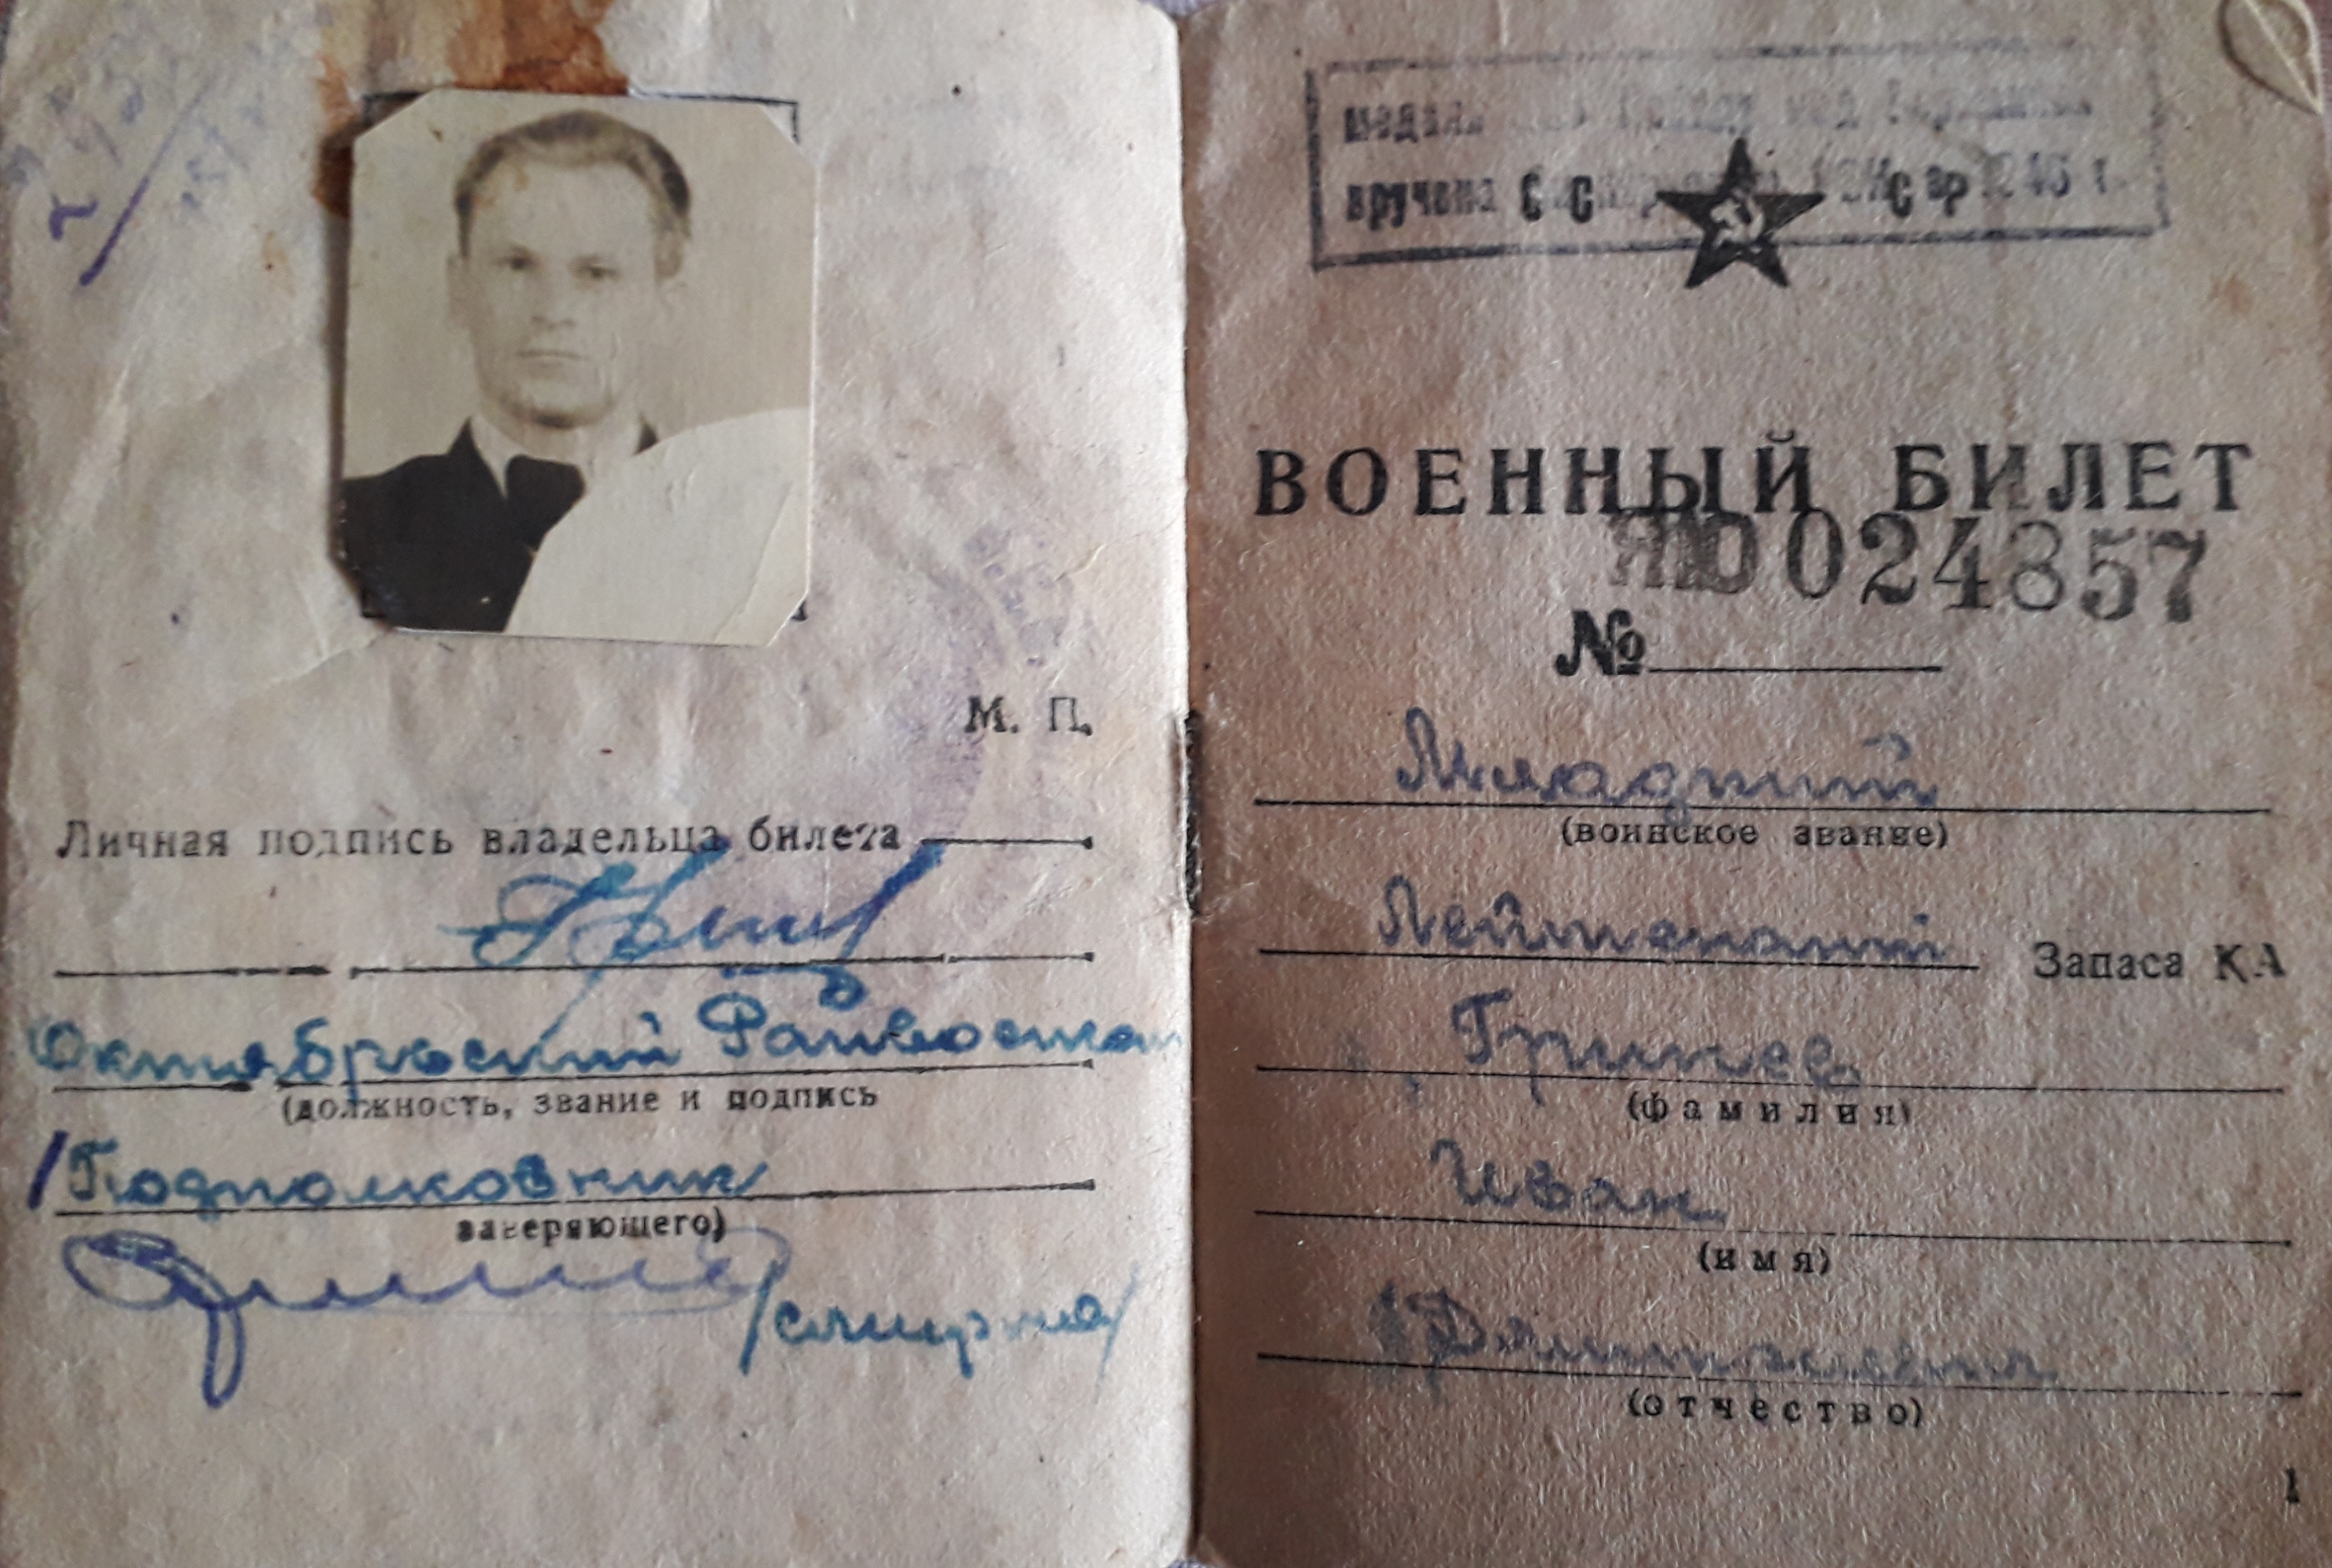 М. П.
Личная подпись владельца билета
Октябрьский Райвоенком
(должность, звание и подпись
Подполковник
заверяющего)
/Смирнов/
медаль Победу над Германией
вручена 1945 г.
ВОЕННЫЙ БИЛЕТ
024857
№
Младший
(воинское звание)
Лейтенант Запаса КА
Гринев
(фамилия)
Иван
(имя)
(отчество)
1